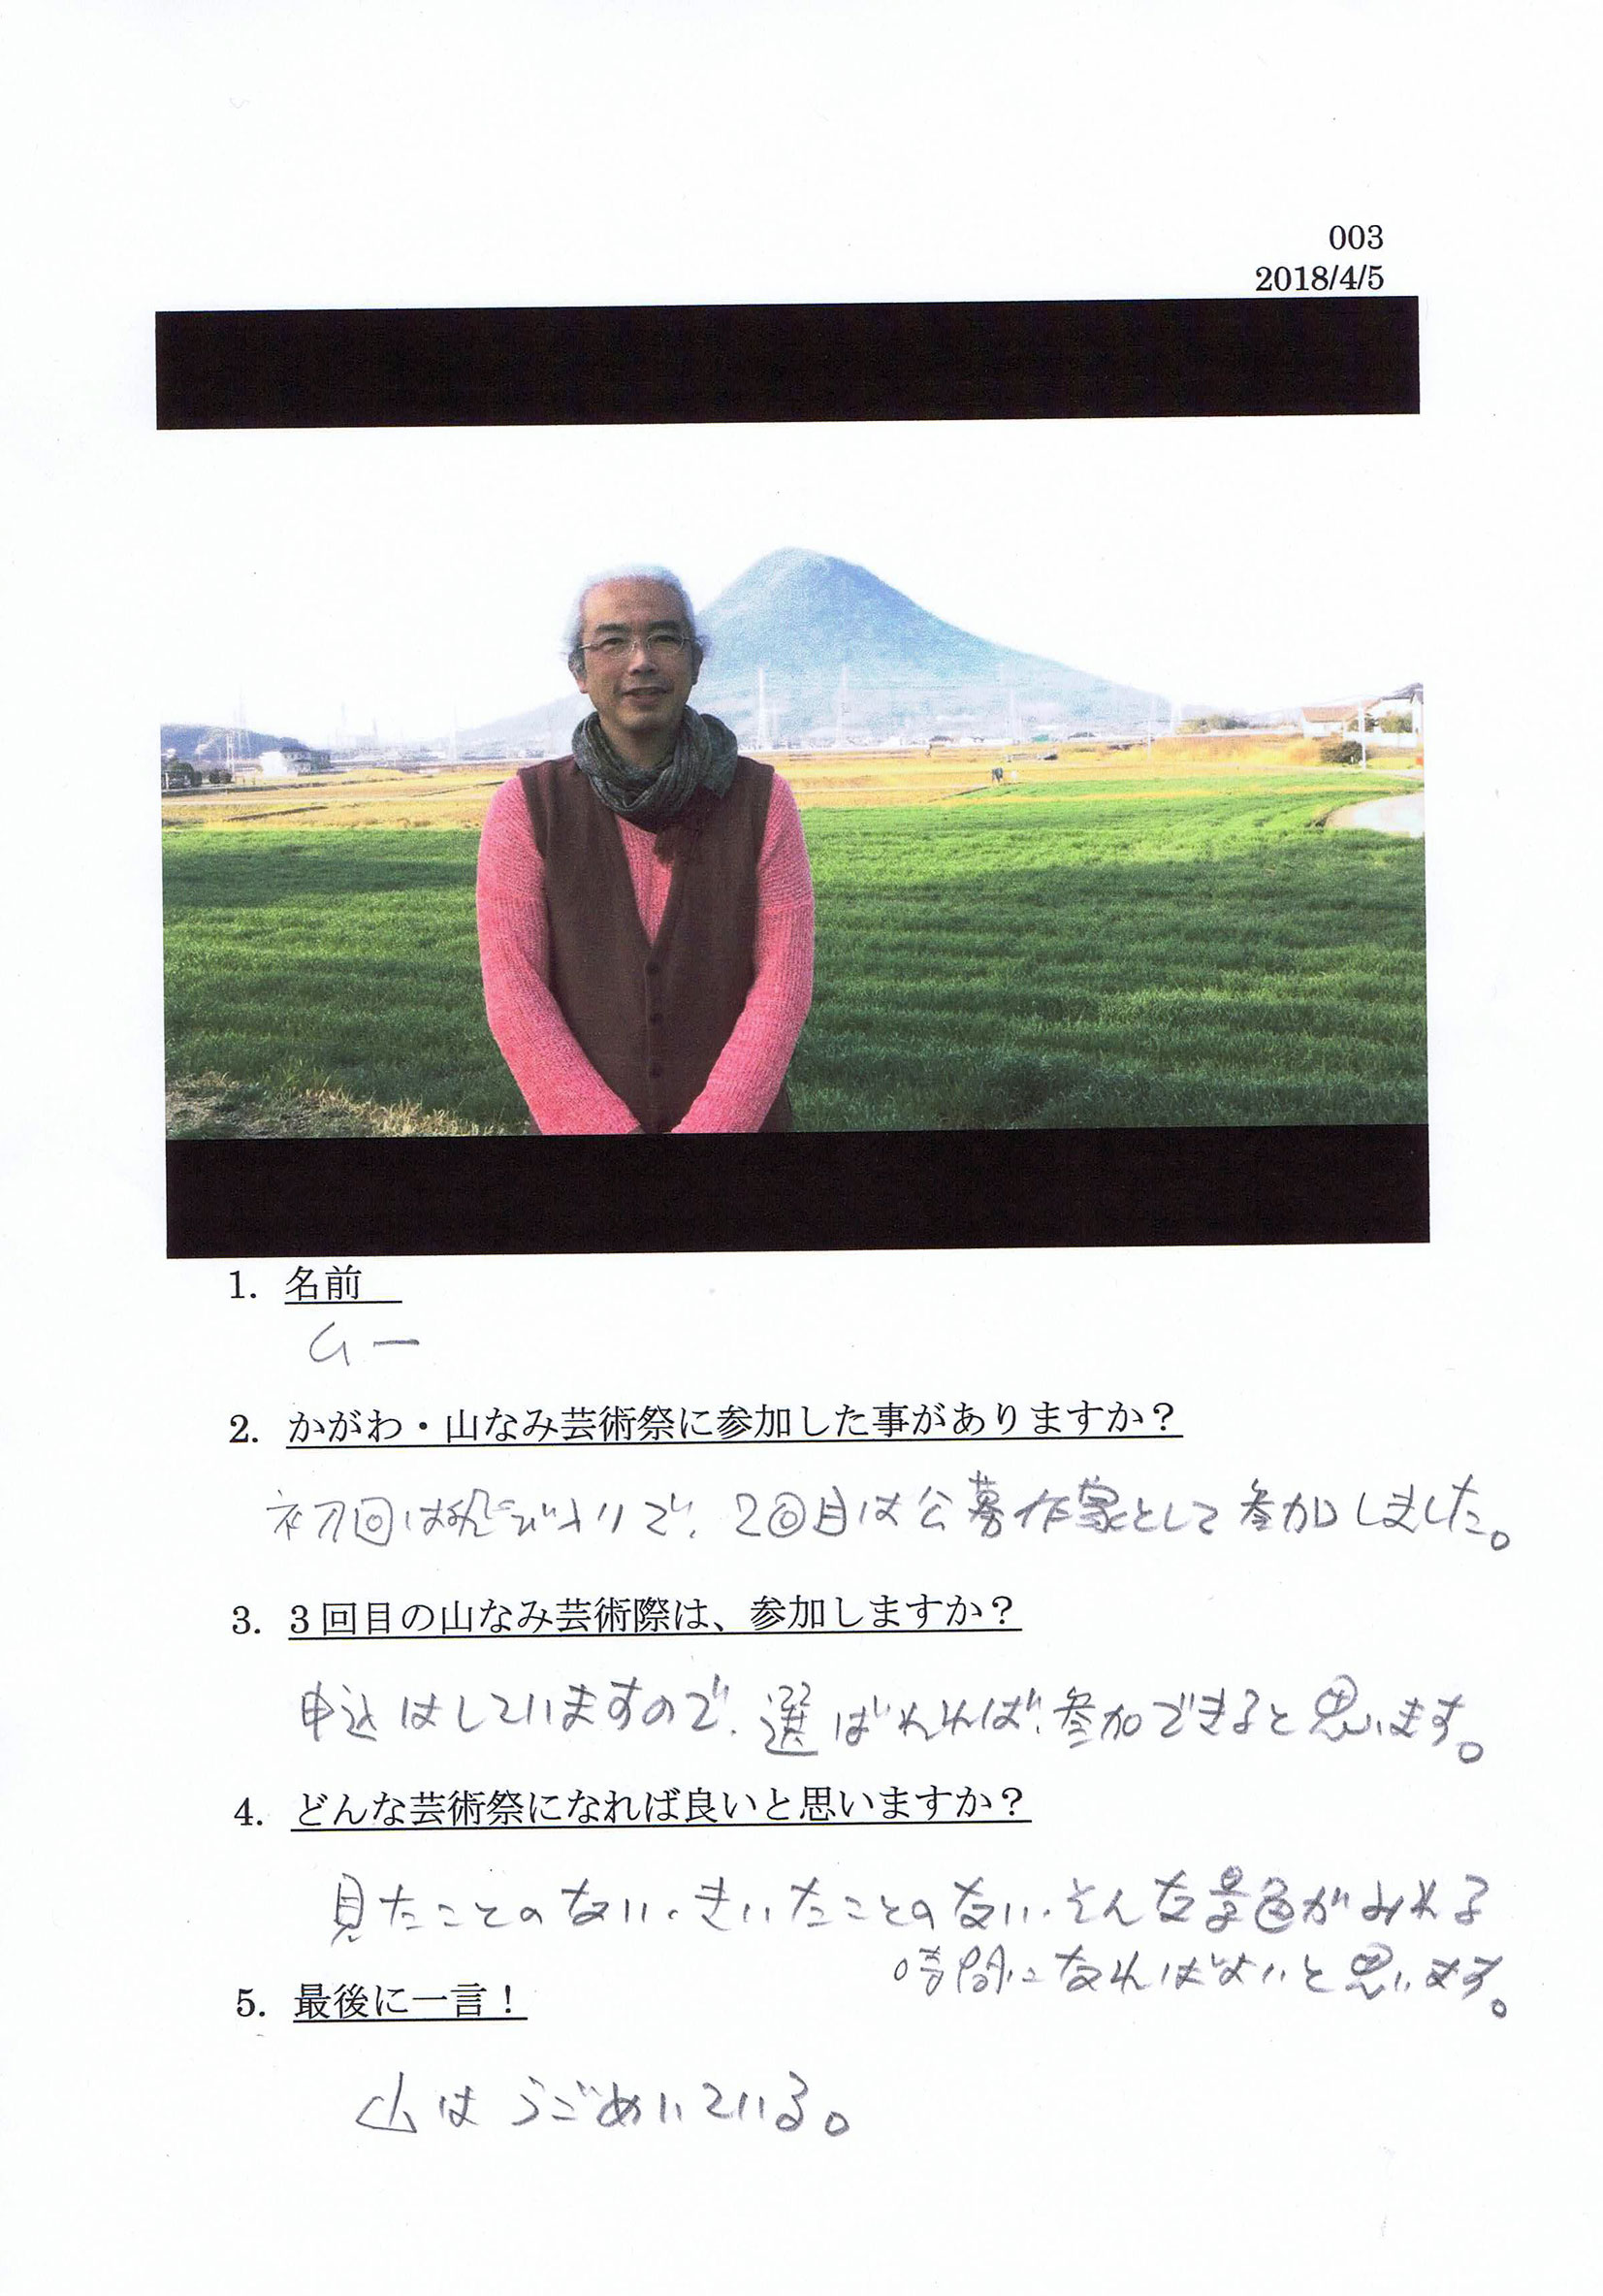 003
2018/4/5
1. 名前
ムー
2. かがわ・山なみ芸術祭に参加した事がありますか？
初回は飛び入りで、2回目は公募作家として参加しました。
3. 3回目の山なみ芸術際は、参加しますか？
申込はしていますので、選ばれれば、参加できると思います。
4. どんな芸術祭になれば良いと思いますか？
見たことのない、きいたことのない、そんな景色がみれる
時間になればよいと思います。
5. 最後に一言！
山はうごめいている。